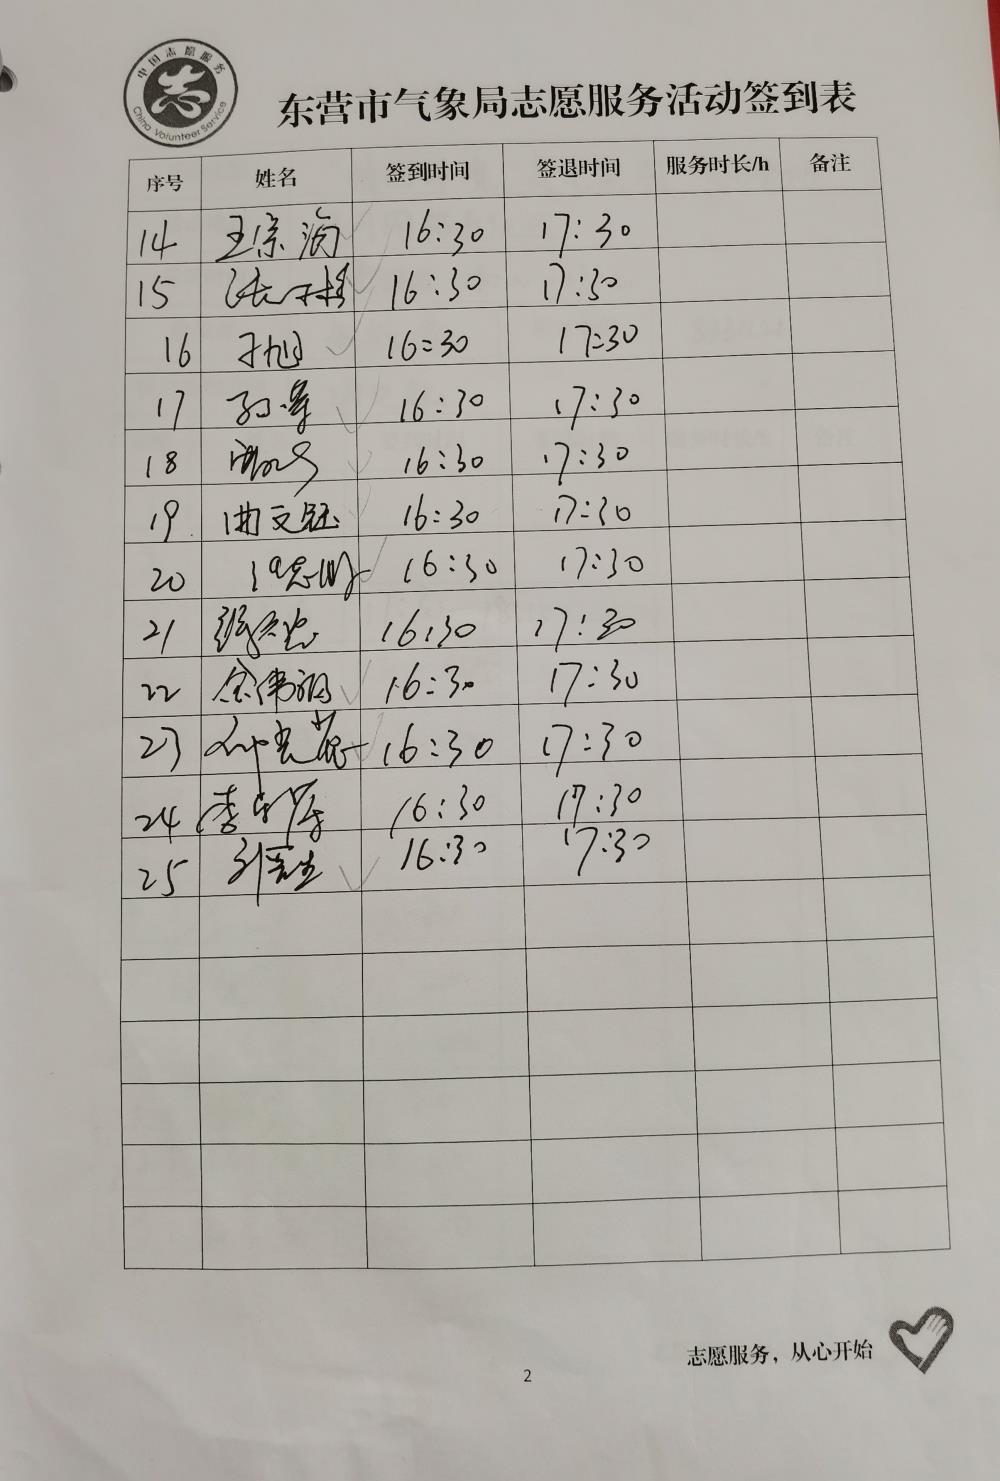 中国志愿服务
志
China Volunteer Service
东营市气象局志愿服务活动签到表
序号 姓名 签到时间 签退时间 服务时长/h 备注
14 王宗海 16:30 17:30
15 16:30 17:30
16 于旭 16:30 17:30
17 16:30 17:30
18 16:30 17:30
19 曲文钰 16:30 17:30
20 16:30 17:30
21 16:30 17:30
22 16:30 17:30
23 16:30 17:30
24 16:30 17:30
25 16:30 17:30
志愿服务，从心开始
2